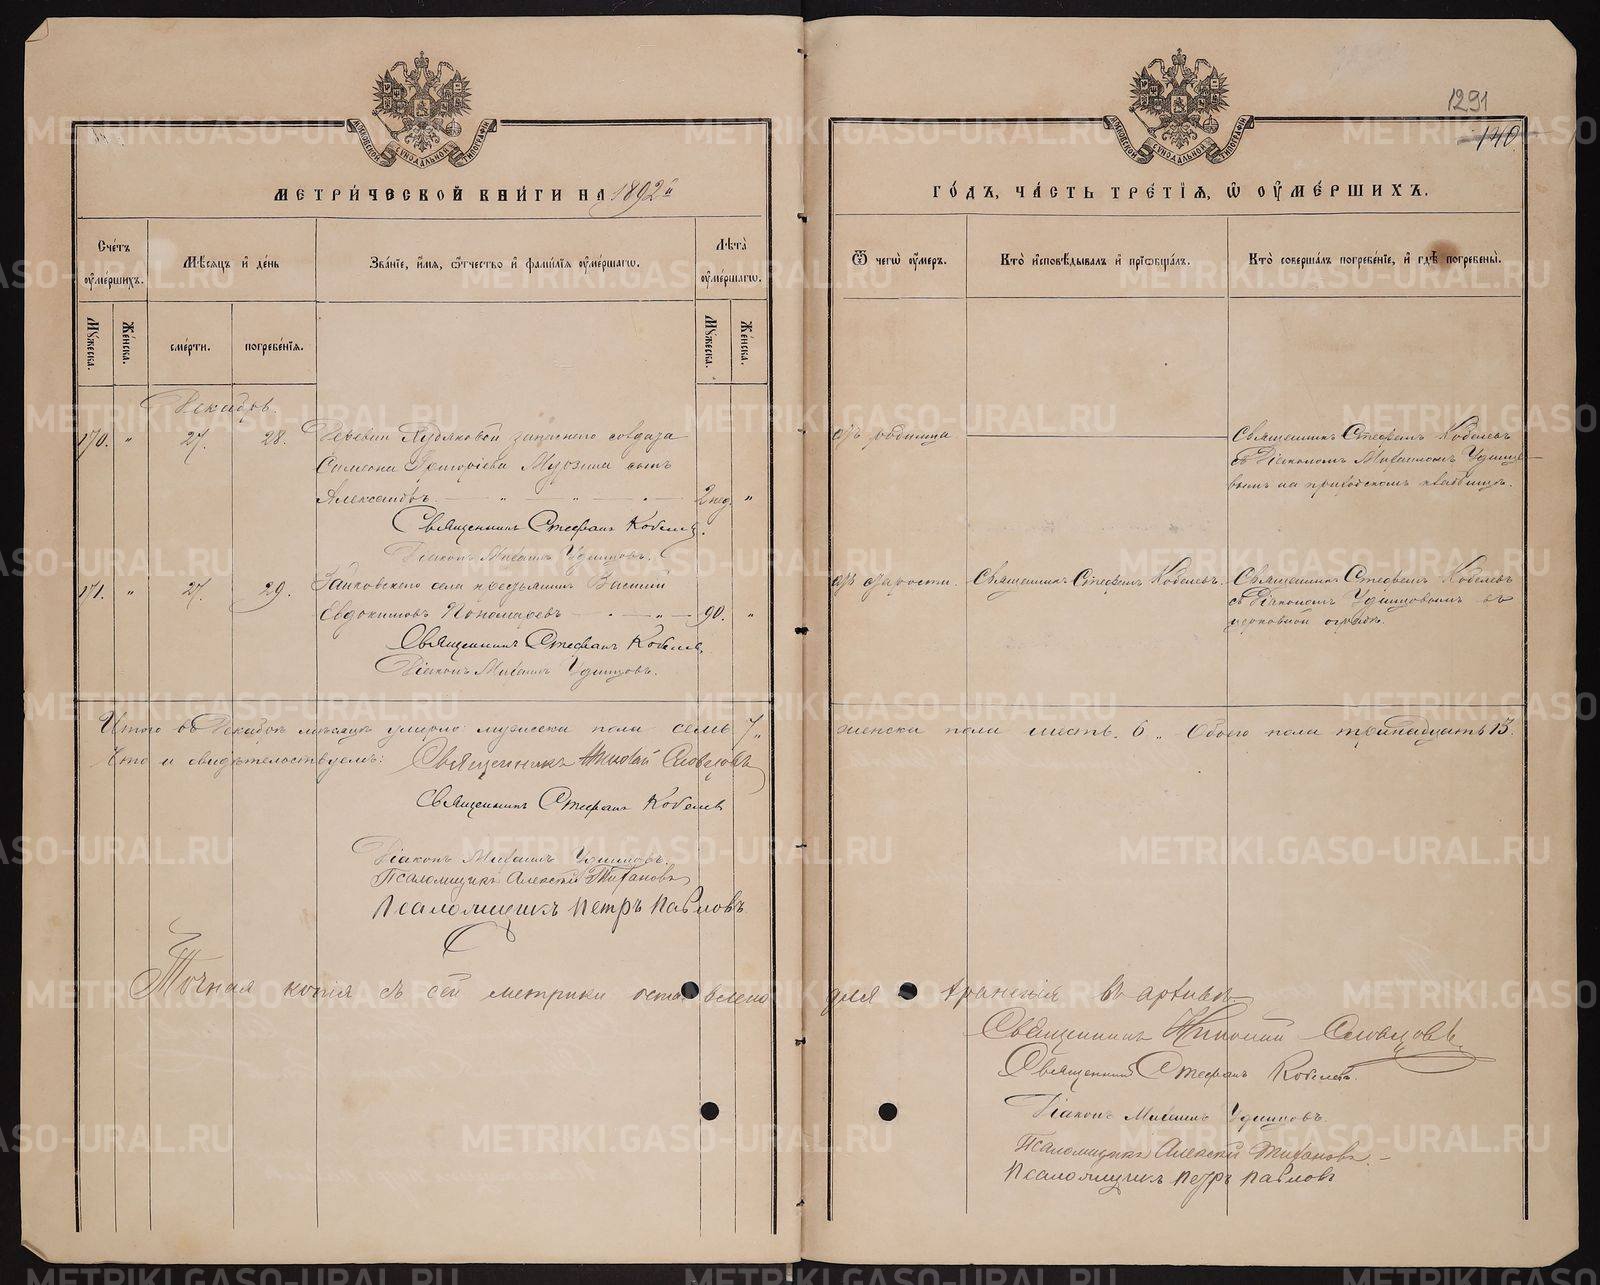 1291
140
МЕТРИ́ЧЕСКОЙ КНИ́ГИ НА 1892й
ГО́ДЪ, ЧА́СТЬ ТРЕ́ТІЯ, Ѡ ОУ҆МЕ́РШИХЪ.
Сче́тъ оу҆ме́ршихъ.
Мѣ́сяцъ и҆ де́нь
Зва́нїе, и҆́мя, ѻ҆́тчество и҆ фами́лїя оу҆ме́ршагѡ.
Лѣ́та оу҆ме́ршагѡ.
Ѿ чегѡ̀ оу҆́меръ.
Кто̀ и҆сповѣ́дывалъ и҆ прїѡбща́лъ.
Кто̀ соверша́лъ погребе́нїе, и҆ гдѣ̀ погребены̀.
Мꙋ́жеска.
Же́нска.
сме́рти.
погребе́нїя.
Мꙋ́жеска.
Же́нска.
Декабрь.
170. " 27. 28. Деревни запаснаго солдата
Симеона Григоріева Мурзина сынъ
Александръ. 2 нед. "
Священникъ Стефанъ Кобелев.
Діаконъ Михаилъ Удинцовъ.
отъ родимца
Священникъ Стефанъ Кобелевъ
съ Діакономъ Михаиломъ Удинцо-
вымъ на приходскомъ кладбищѣ.
171. " 27. 29. Зайковскаго села крестьянинъ Василій
Евдокимовъ Пономаревъ 90. "
Священникъ Стефанъ Кобелев.
Діаконъ Михаилъ Удинцовъ.
отъ старости.
Священникъ Стефанъ Кобелевъ.
Священникъ Стефанъ Кобелевъ
съ Діакономъ Удинцовымъ въ
церковной оградѣ.
Итого въ Декабрѣ мѣсяцѣ умерло: мужеска пола семь 7., женска пола шесть. 6. Обоего пола тринадцать 13.
Что и свидѣтельствуемъ: Священникъ Николай Словцовъ
Священникъ Стефанъ Кобелев
Діаконъ Михаилъ Удинцовъ.
Псаломщикъ Алексѣй Тихановъ
Псаломщикъ Петръ Павловъ
Точная копія съ сей метрики оставлена для храненія въ архивѣ
Священникъ Николай Словцовъ
Священникъ Стефанъ Кобелевъ.
Діаконъ Михаилъ Удинцовъ.
Псаломщикъ Алексѣй Тихановъ.
Псаломщикъ Петръ Павловъ
METRIKI.GASO-URAL.RU